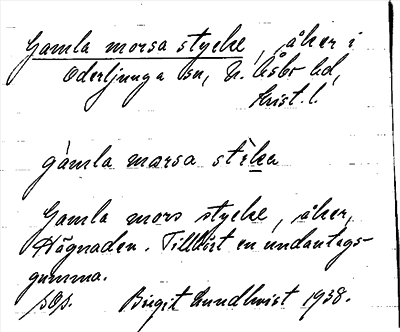 Gamla morsa stycke, åker i
Oderljunga sn, N. Åsbo hd,
Krist. l.
gamla marsa stека
Gamla mors stycke, åker,
Högnaden. Tillhört en undantags-
gumma.
sOp. Birgit Lundkvist 1938.